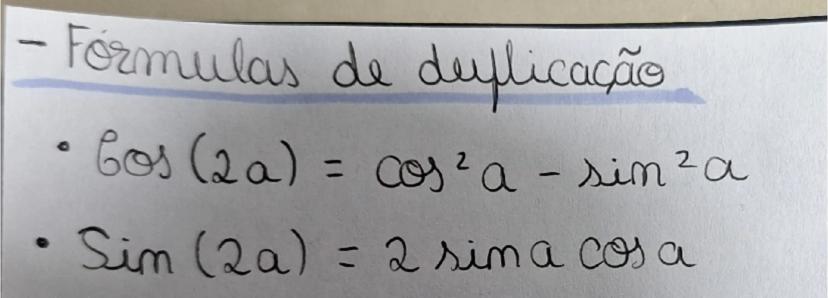 - Fórmulas de duplicação
• Cos (2a) = cos² a - sin² a
• Sin (2a) = 2 sin a cos a